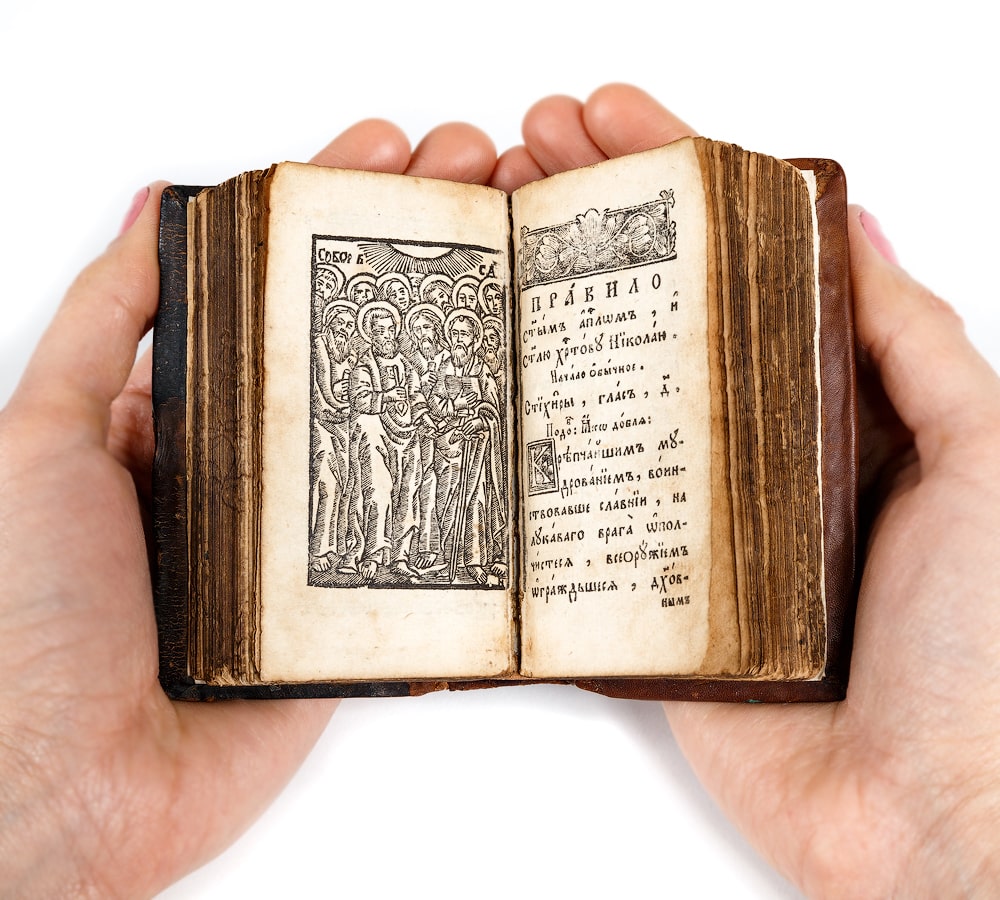 СОБОР В
СА
ПРА́ВИЛО
ст҃ы́мъ а҆пⷭ҇лѡмъ , и҆
ст҃лю хрⷭ҇то́вꙋ Нїкола́ю .
Нача́ло ѻ҆бы́чное .
Стїхи̑ры , гла́съ , д҃ .
Подо́ : Ꙗ҆́кѡ до́блѧ :
Крѣпча́йшимъ мꙋ-
дрова́нїемъ , во́ин-
ствовавше сла́внїи , на
лꙋка́ваго врага̀ ѡ҆пол-
чи́стесѧ , всеѻрꙋ́жїемъ
ѡ҆гражды́шесѧ , дꙋхо́в-
нымъ